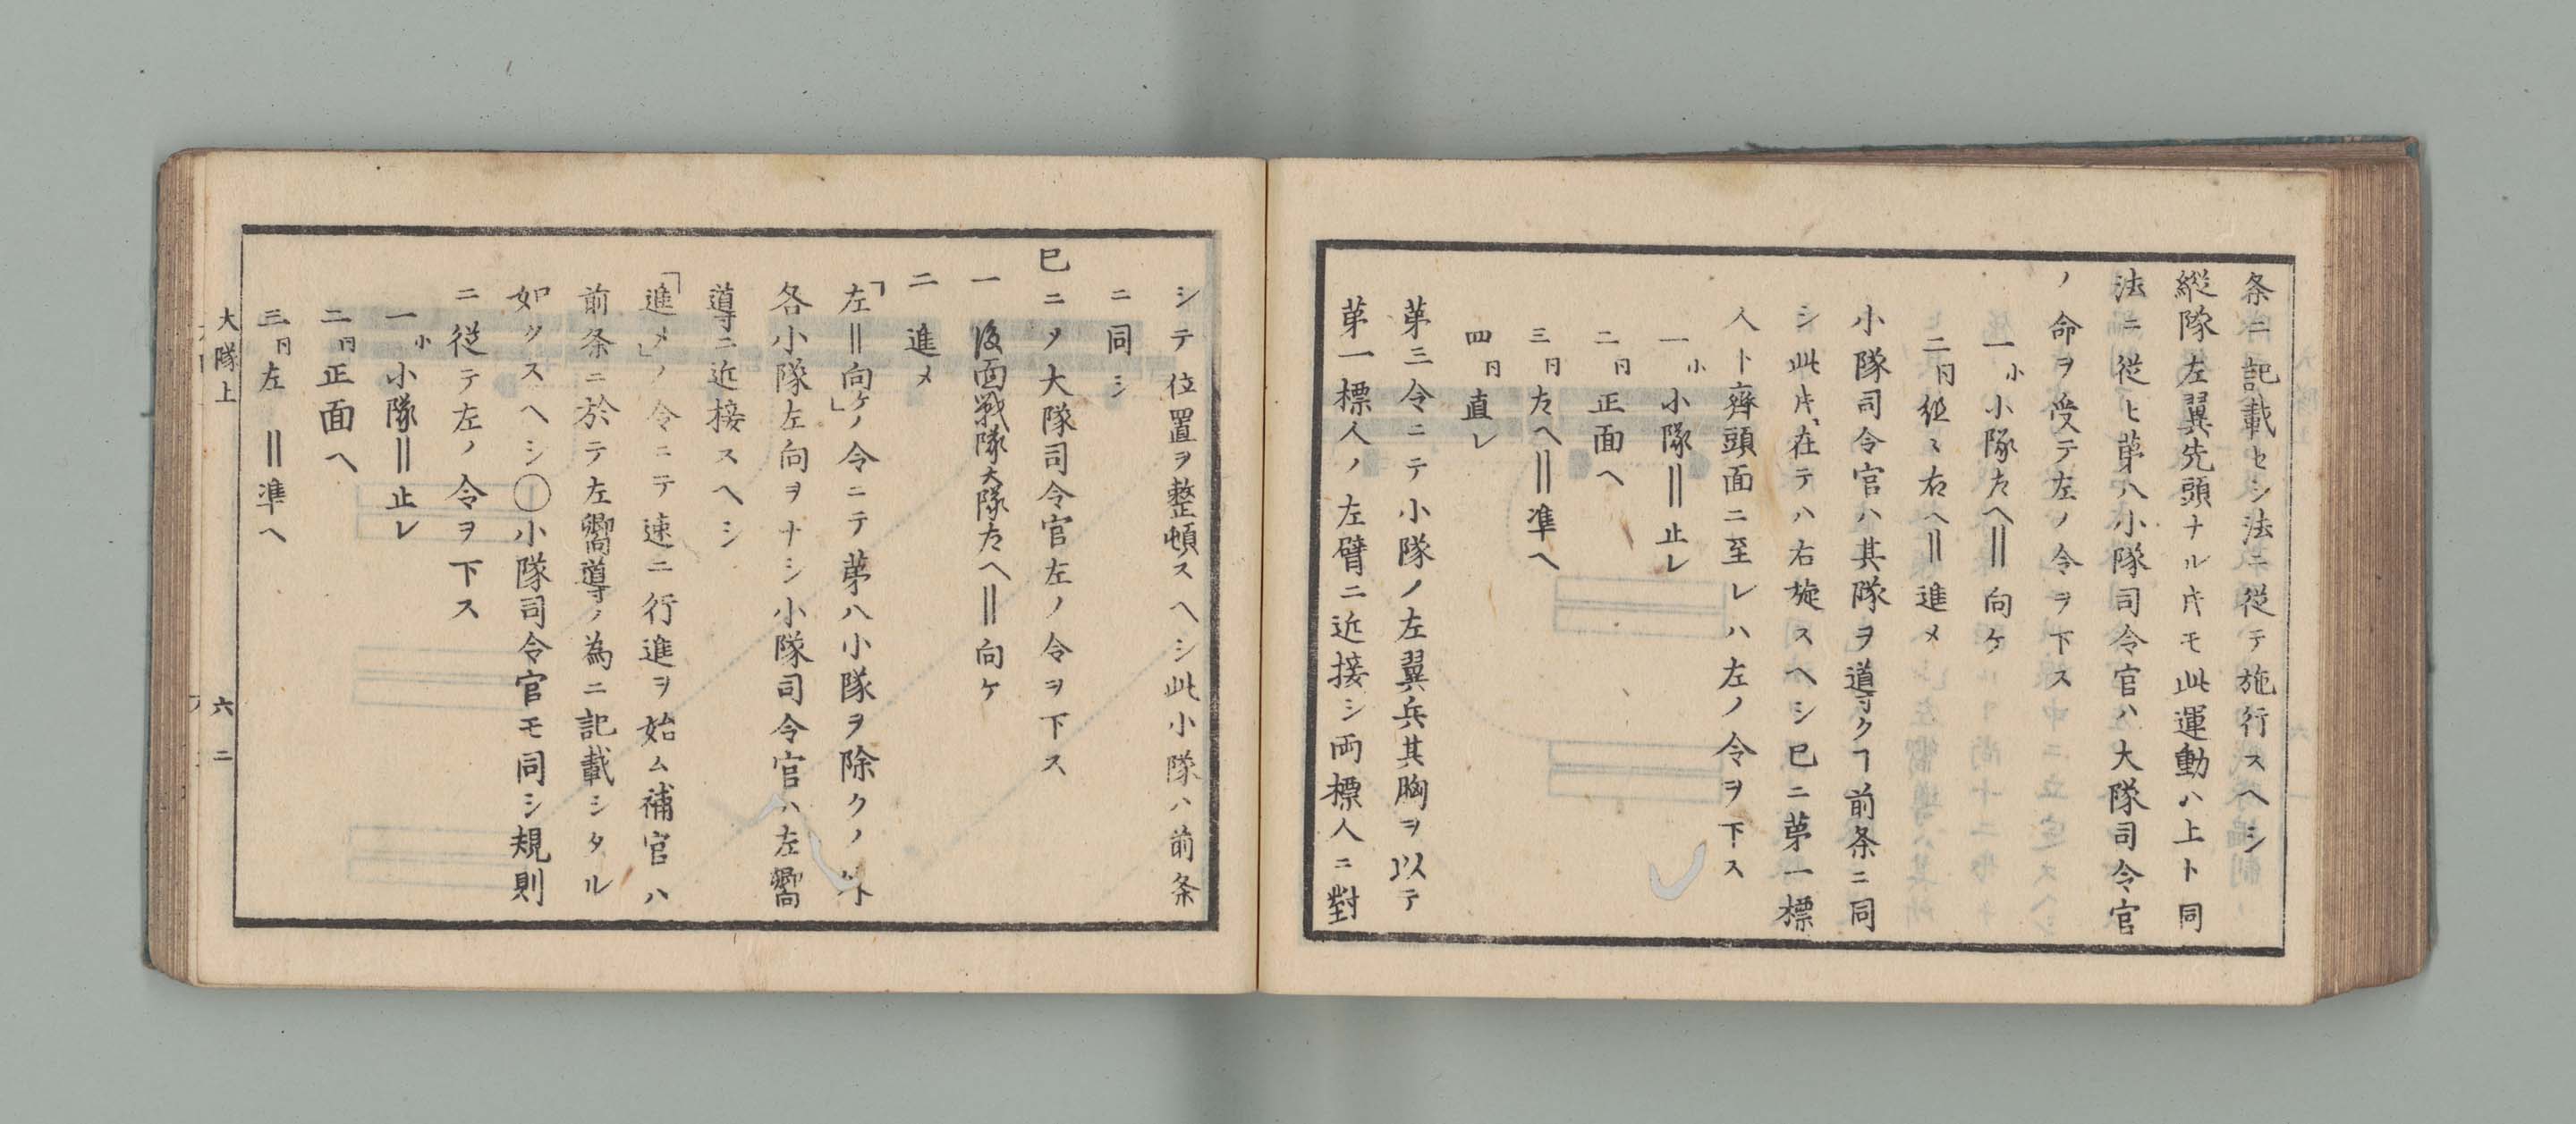 条ニ記載セシ法ニ従テ施行スヘシ
縦隊左翼先頭ナル𪜈モ此運動ハ上ト同
法ニ従ヒ苐八小隊司令官ハ大隊司令官
ノ命ヲ受テ左ノ令ヲ下ス
一小 小隊左へ‖向ケ
二同 組々右へ‖進メ
小隊司令官ハ其隊ヲ導クヿ前条ニ同
シ此𪜈在テハ右旋スヘシ已ニ苐一標
人ト齊頭面ニ至レハ左ノ令ヲ下ス
一小 小隊‖止レ
二同 正面へ
三同 左へ‖準へ
四同 直レ
苐三令ニテ小隊ノ左翼兵其胸ヲ以テ
苐一標人ノ左臂ニ近接シ両標人ニ對
シテ位置ヲ整頓スヘシ此小隊ハ前条
ニ同シ
已ニノ大隊司令官左ノ令ヲ下ス
一 後面戦隊大隊左へ‖向ケ
二 進メ
「左‖向ケ」ノ令ニテ苐八小隊ヲ除クノ外
各小隊左向ヲナシ小隊司令官ハ左嚮
導ニ近接スヘシ
「進メ」ノ令ニテ速ニ行進ヲ始ム補官ハ
前条ニ於テ左嚮導ノ為ニ記載シタル
如クスヘシ〇小隊司令官モ同シ規則
ニ従テ左ノ令ヲ下ス
一小 小隊‖止レ
二同 正面へ
三同 左‖準へ
大隊上 六二